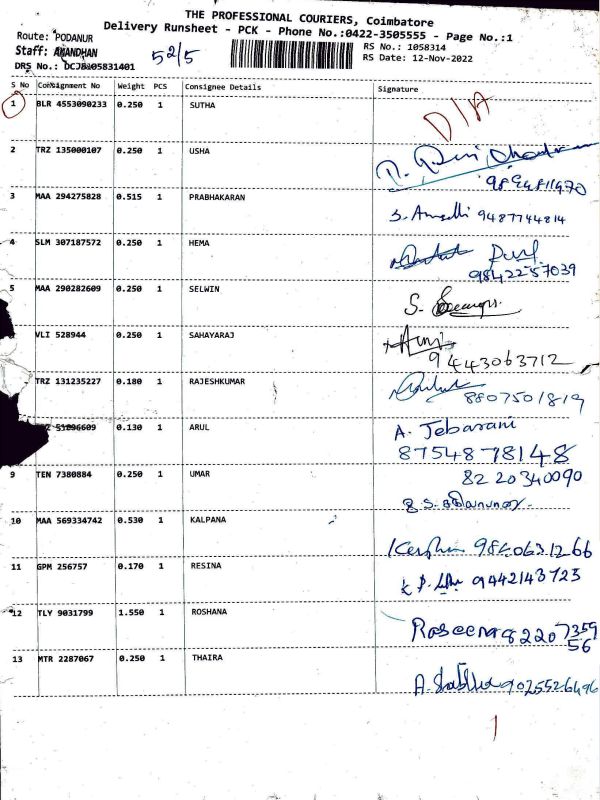 THE PROFESSIONAL COURIERS, Coimbatore
Delivery Runsheet - PCK - Phone No.:0422-3505555 - Page No.:1
Route: PODANUR
RS No.: 1058314
Staff: ANANDHAN
52/5
RS Date: 12-Nov-2022
DRS No.: DCJB105831401
S No Consignment No Weight PCS Consignee Details Signature
1 BLR 4553090233 0.250 1 SUTHA
D/A
2 TRZ 135000107 0.250 1 USHA
9894811970
3 MAA 294275828 0.515 1 PRABHAKARAN
9487744814
4 SLM 307187572 0.250 1 HEMA
9842257039
5 MAA 290282609 0.250 1 SELWIN
S.
VLI 528944 0.250 1 SAHAYARAJ
9443063712
TRZ 131235227 0.180 1 RAJESHKUMAR
8807501819
51896609 0.130 1 ARUL
A. Jebarani
8754878148
9 TEN 7380884 0.250 1 UMAR
8220340090
10 MAA 569334742 0.530 1 KALPANA
9840631266
11 GPM 256757 0.170 1 RESINA
9442143723
12 TLY 9031799 1.550 1 ROSHANA
Roseena 8220 7359
56
13 MTR 2287067 0.250 1 THAIRA
A. 9025526496